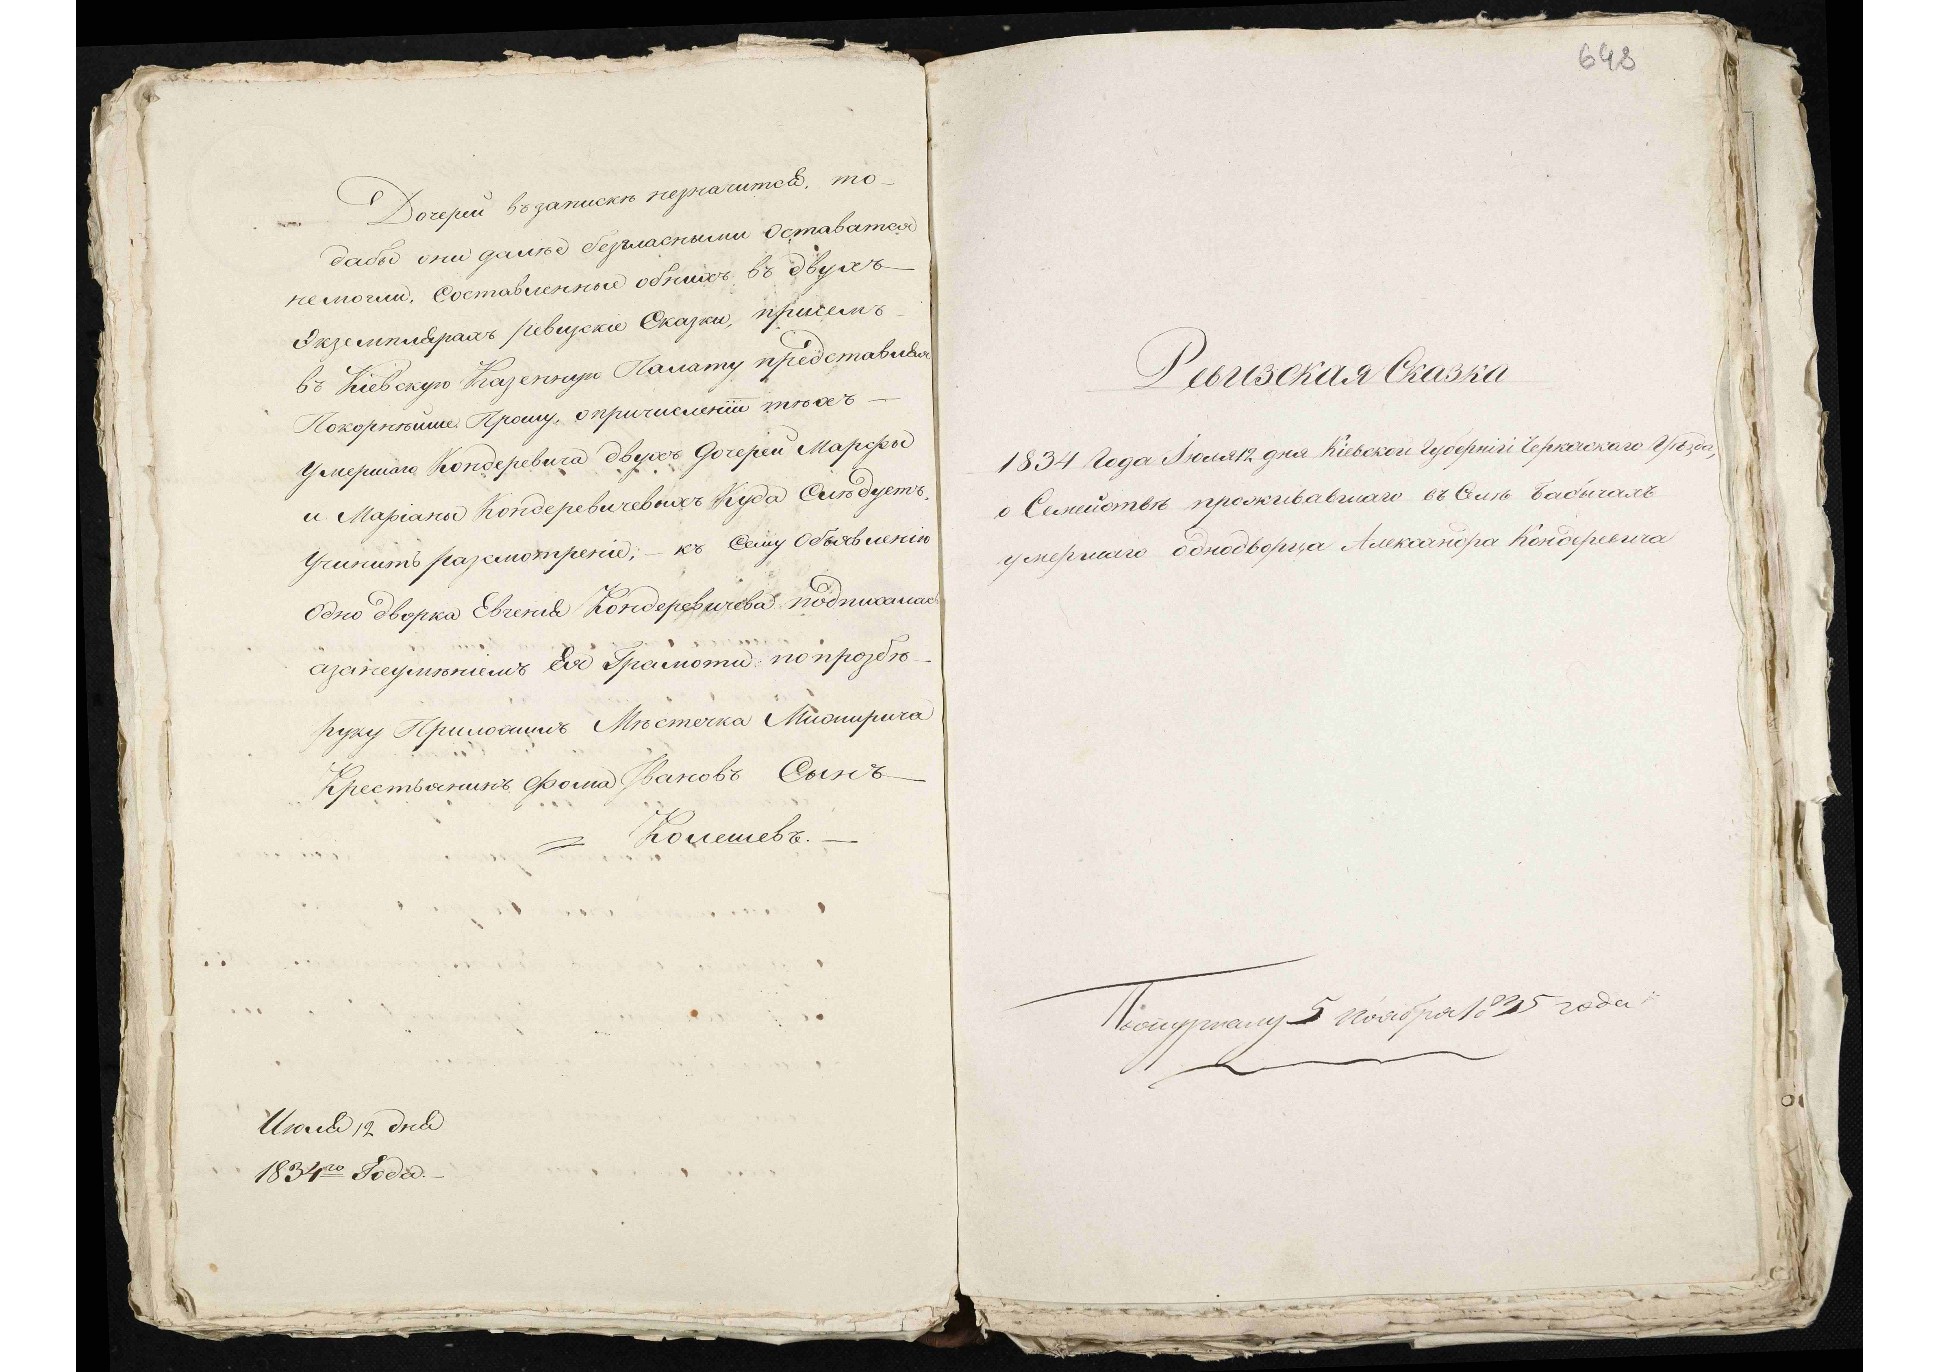 Дочерей въ запискѣ незначится, то-
дабы они далѣе безгласными Оставатся
немогли, Составленные обнихъ въ двухъ
Экземплярахъ ревизскіе Сказки, присемъ
въ Кіевскую Казенную Палату представляя
Покорнѣйше Прошу, опричисленіи тѣхъ
Умершаго Кондеревича двухъ Дочерей Марфы
и Маріаны Кондеревичевыхъ Куда Слѣдуетъ,
Учинить разсмотреніе; - къ Сему Объявленію
Однодворка Евгенія Кондеревичева подписалась
азанеумѣніемъ Ея Грамоты попрозбѣ
руку Приложилъ Мѣстечка
Крестьянинъ Фома Ивановъ Сынъ
Колешевъ.
Июля 12 дня
1834го Года.
648
Ревизская Сказка
1834 Года Іюля 12 дня Кіевской Губерніи Черкаскаго Уѣзда,
о Семействѣ проживавшаго въ Селѣ Бабичахъ
умершаго однодворца Александра Кондеревича
5 Ноября 1835 года